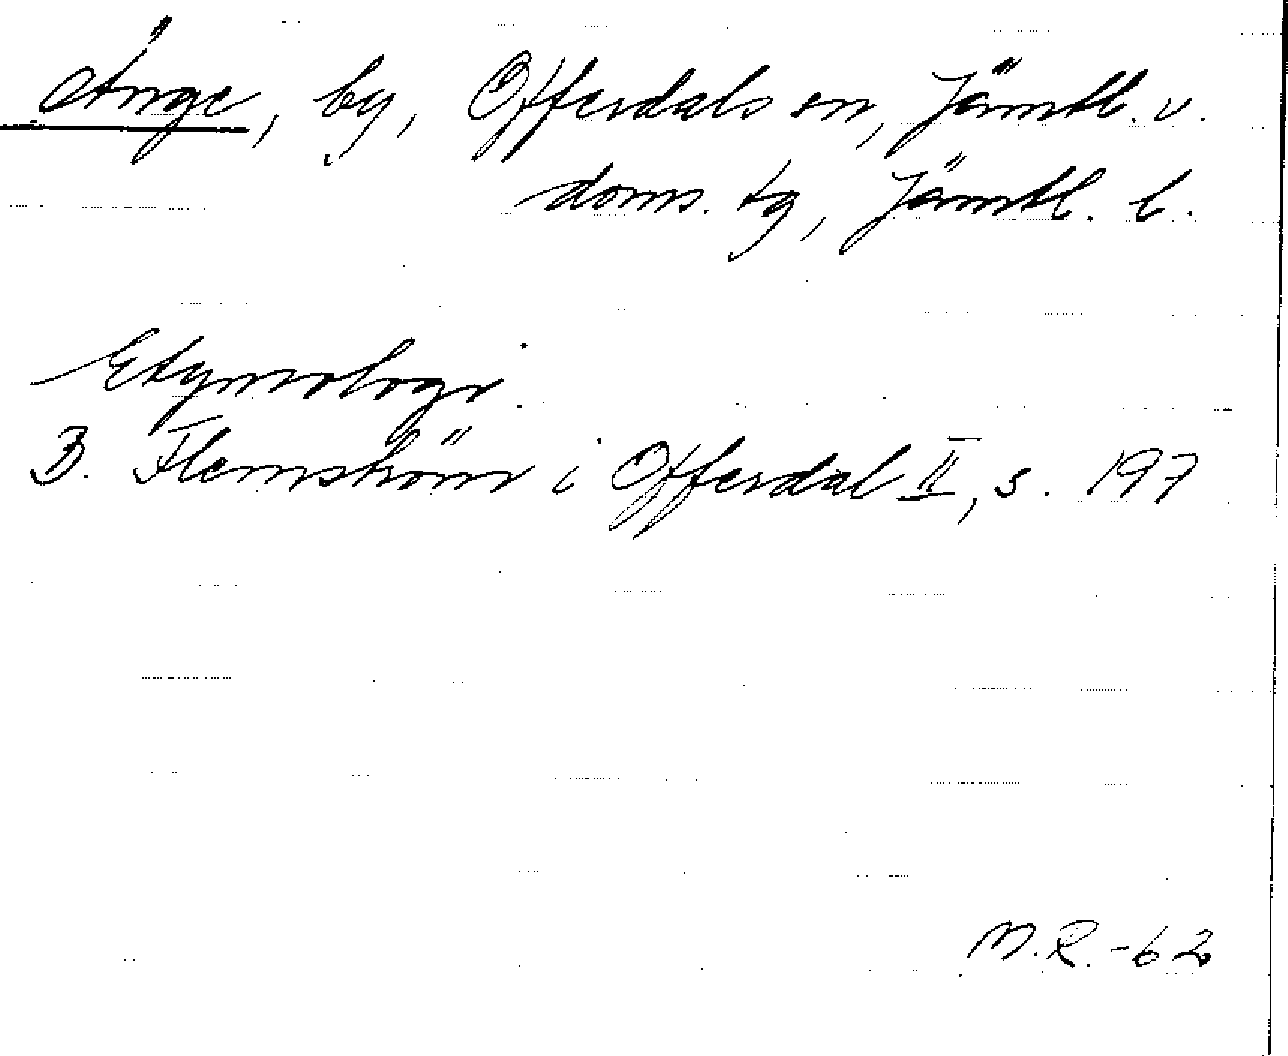 Ånge, by, Offerdals sn, Jämtl. v.
doms. tg, Jämtl. l.
Etymologi
B. Flemström i Offerdal II, s. 197
M.R.-62